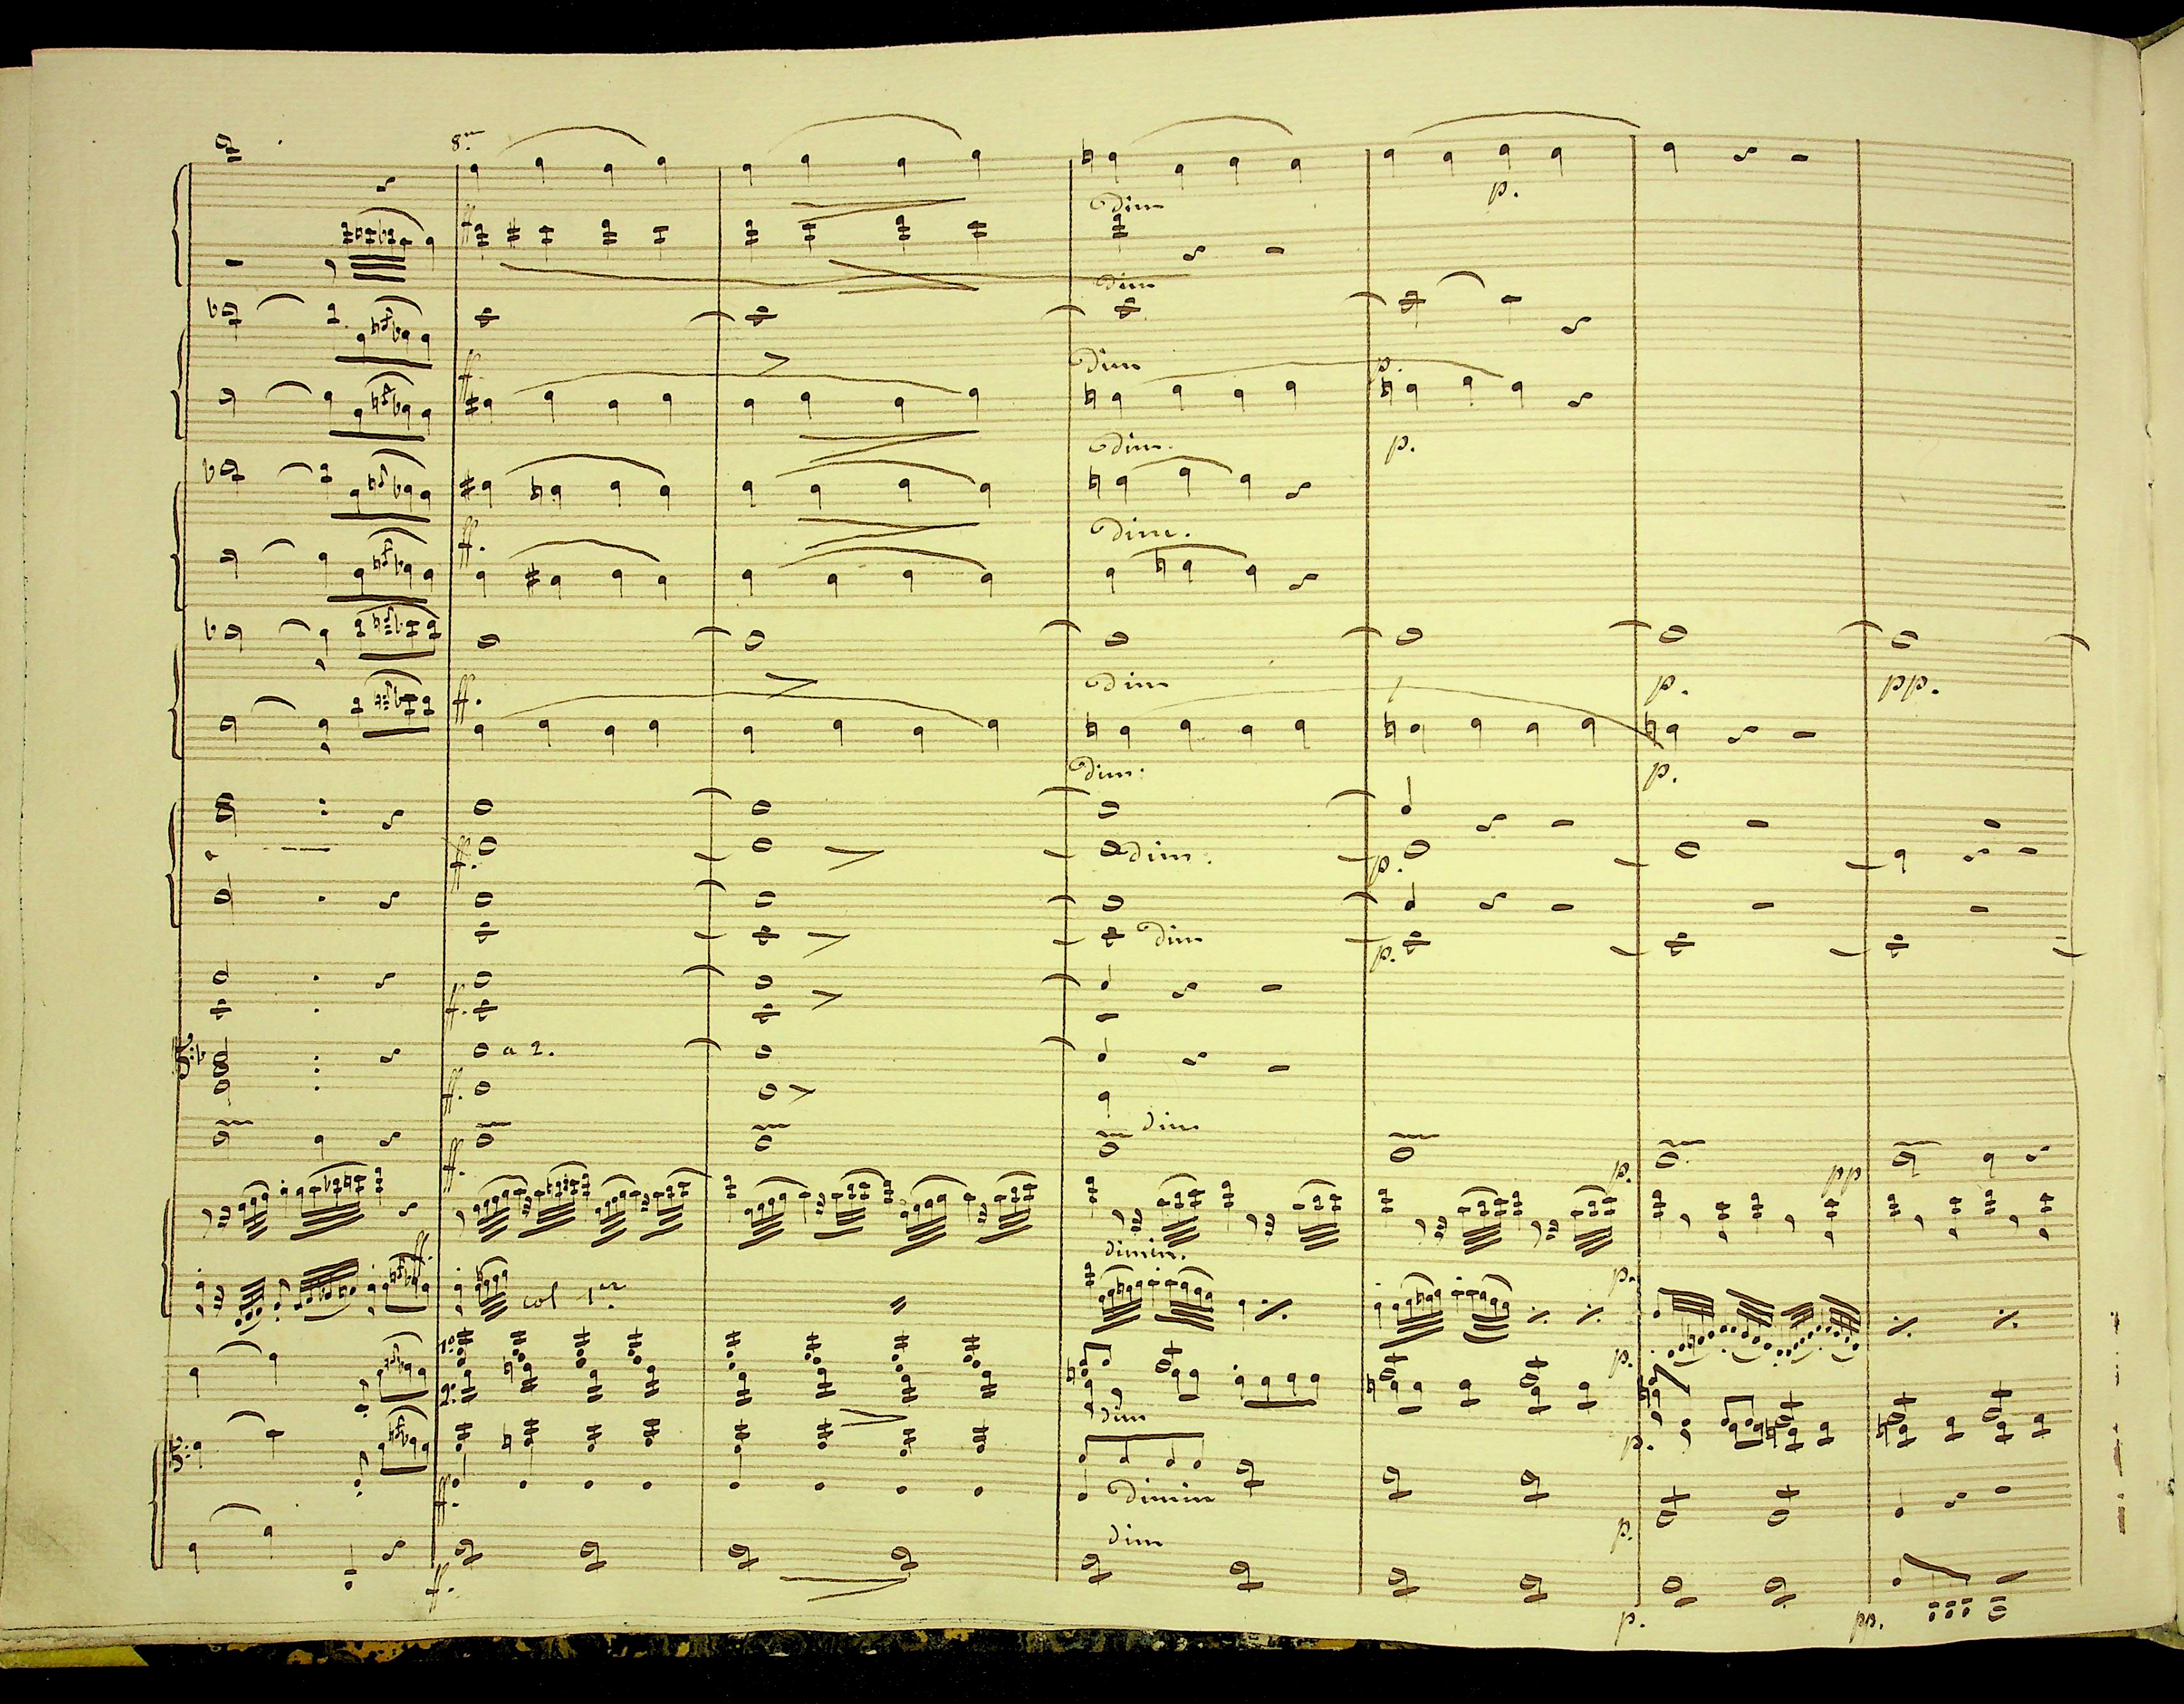 8.va
p.
ff dim
dim
ff dim p.
dim. p.
ff. dim.
ff. dim p. pp.
dim: p.
ff. dim. p.
dim p.
ff.
a 2.
ff.
dim
ff. p. pp
ff. dimin. p.
col 1mo
p.
1o
2.
dim p.
ff. dimin p.
dim
ff. p. pp.